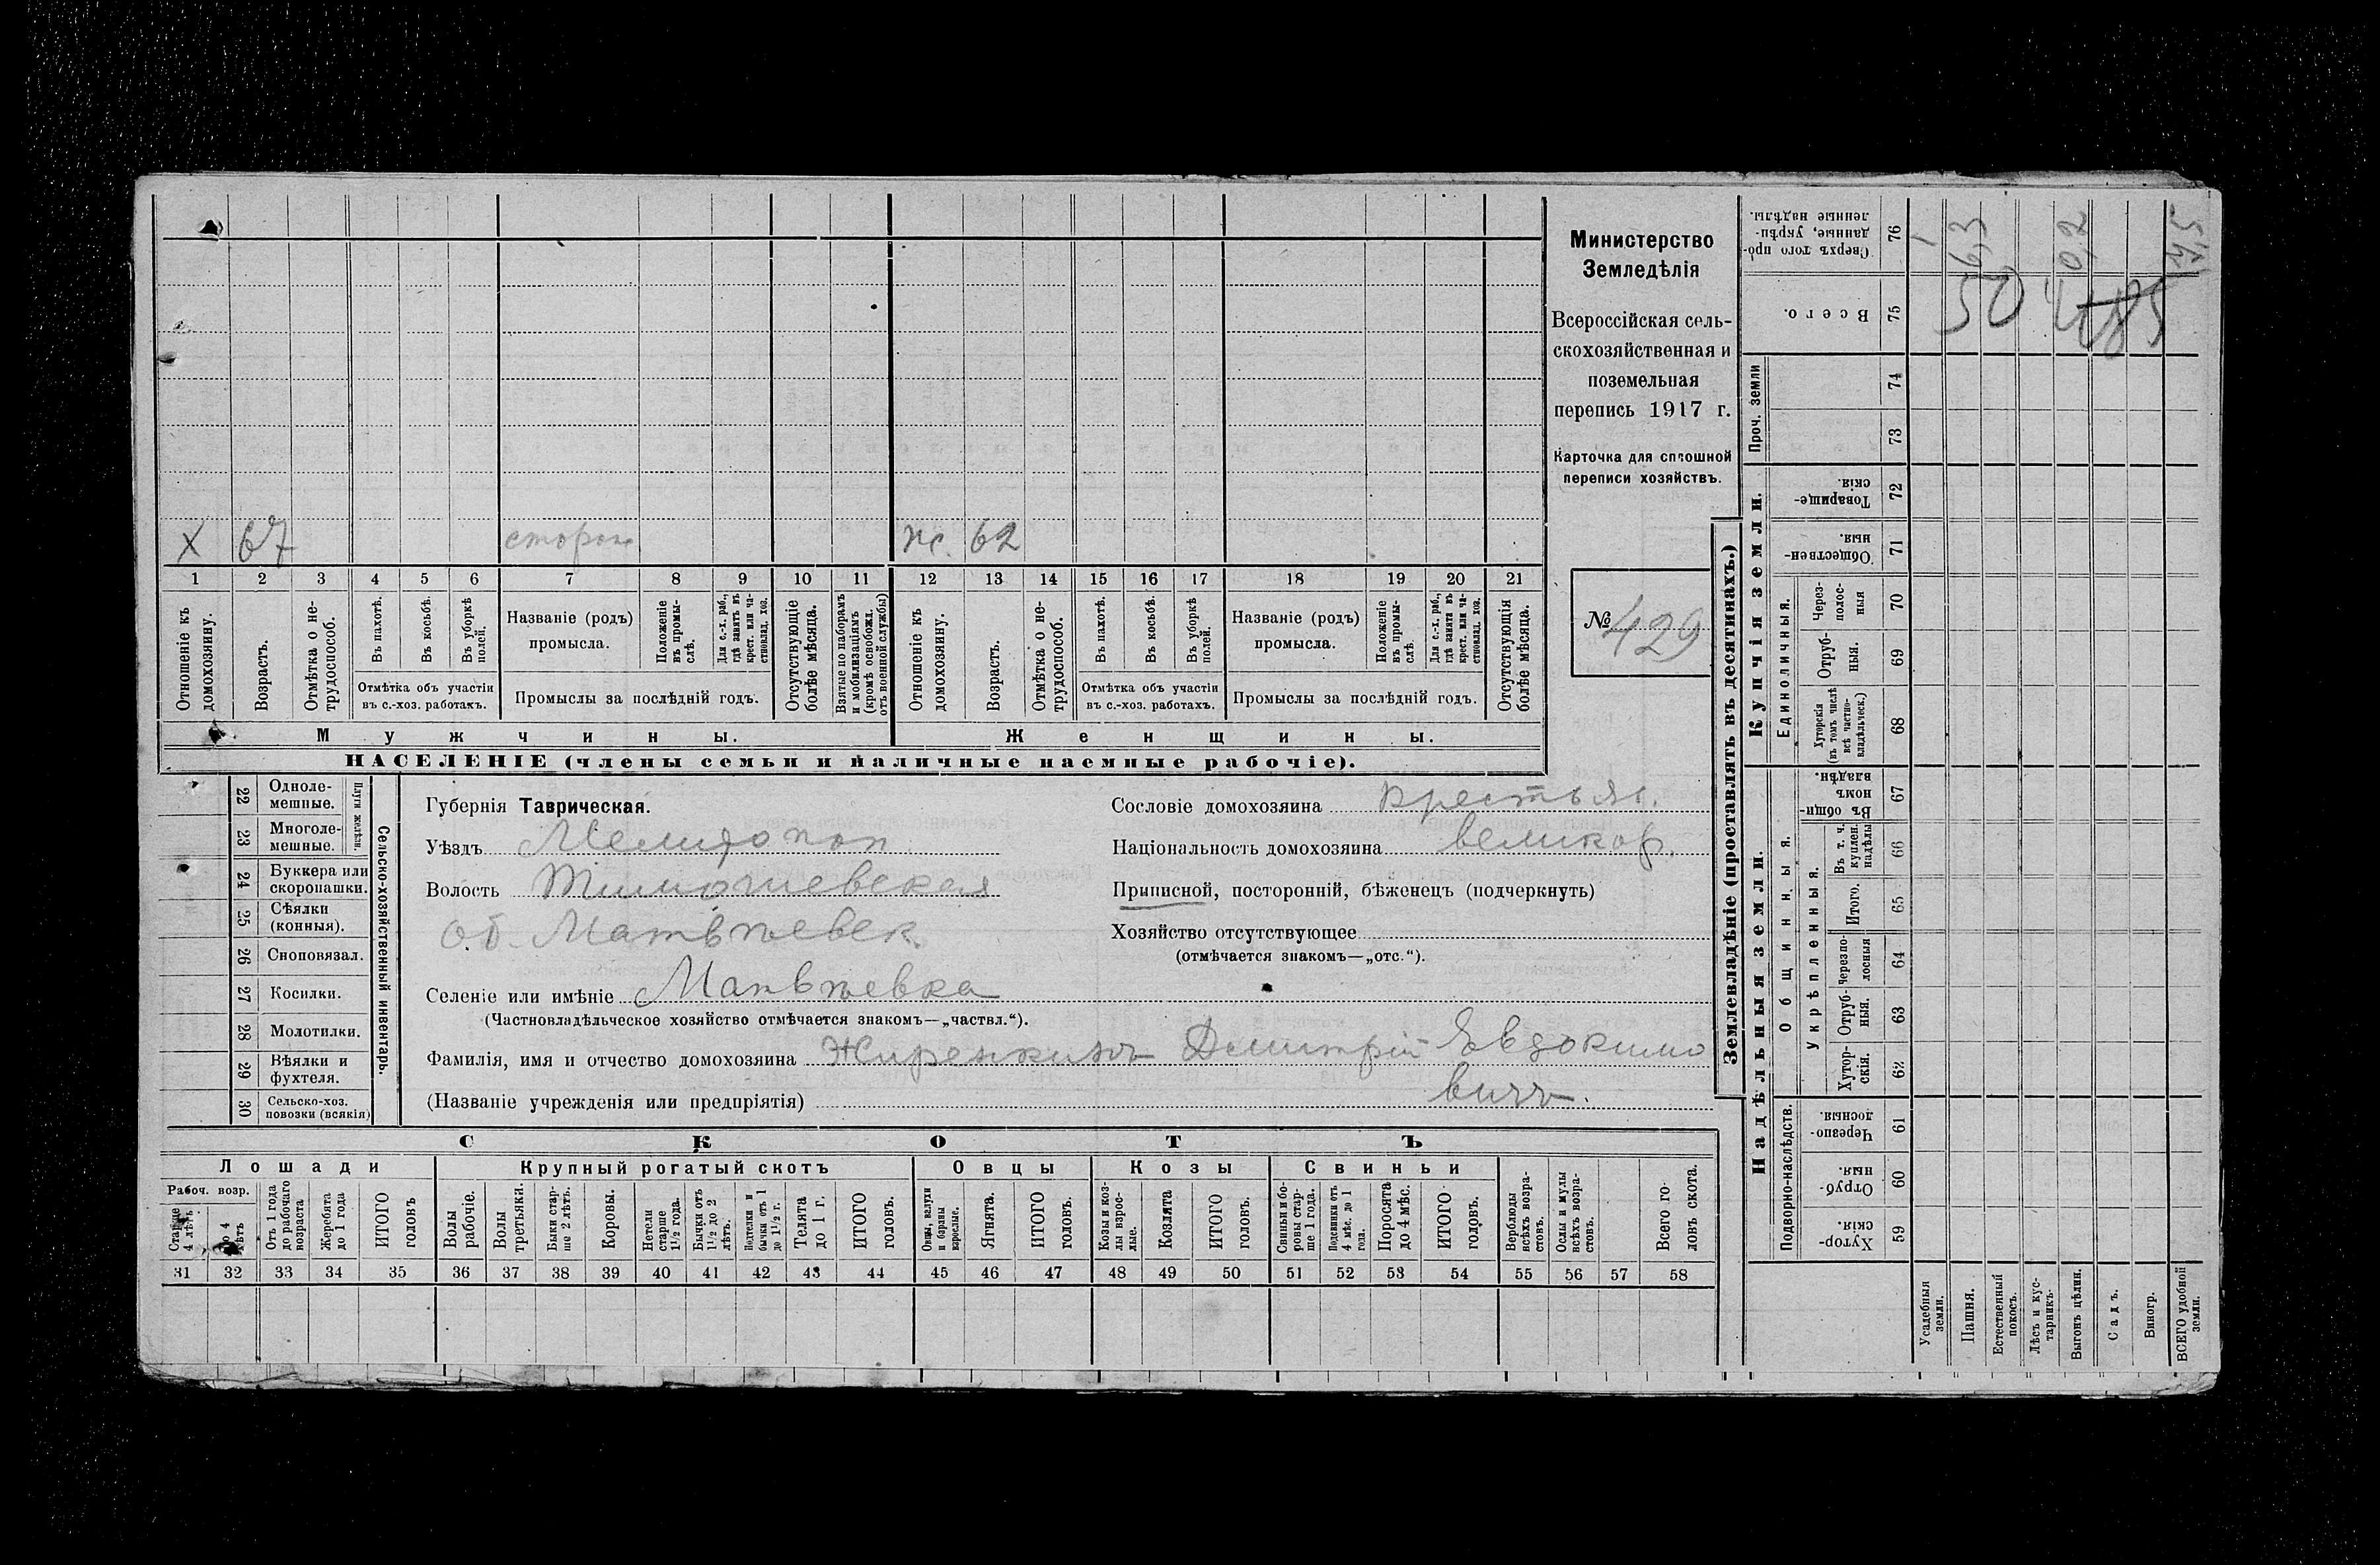 Министерство
Земледѣлія
Всероссійская сель-
скохозяйственная и
поземельная
перепись 1917 г.
Карточка для сплошной
переписи хозяйствъ.
№ 429
х 67 сторож ж. 62
1 2 3 4 5 6 7 8 9 10 11 12 13 14 15 16 17 18 19 20 21
Отношеніе къ домохозяину.
Возрастъ.
Отмѣтка о не-трудоспособ.
Въ пахотѣ.
Въ косьбѣ.
Въ уборкѣ полей.
Отмѣтка объ участіи
въ с.-хоз. работахъ.
Названіе (родъ)
промысла.
Положеніе въ промы-слѣ.
Для с.-х. раб., гдѣ занятъ въ крест. или ча-стновлад. хоз.
Промыслы за послѣдній годъ.
Отсутствующіе болѣе мѣсяца.
Взятые по наборамъ и мобилизаціямъ (кромѣ освобожд. отъ военной службы)
Отношеніе къ домохозяину.
Возрастъ.
Отмѣтка о не-трудоспособ.
Въ пахотѣ.
Въ косьбѣ.
Въ уборкѣ полей.
Отмѣтка объ участіи
въ с.-хоз. работахъ.
Названіе (родъ)
промысла.
Положеніе въ промы-слѣ.
Для с.-х. раб., гдѣ заняти въ крест. или ча-стновлад. хоз.
Промыслы за послѣдній годъ.
Отсутствующія болѣе мѣсяца.
Мужчины.
Женщины.
НАСЕЛЕНІЕ (члены семьи и наличные наемные рабочіе).
22 Одноле-мешные.
23 Многоле-мешные.
Плуги желѣзн.
24 Буккера или скоропашки.
25 Сѣялки (конныя).
26 Сноповязал.
27 Косилки.
28 Молотилки.
29 Вѣялки и фухтеля.
30 Сельско-хоз. повозки (всякія)
Сельско-хозяйственный инвентарь.
Губернія Таврическая.
Уѣздъ Мелитопол
Волость Тимошевская
об. Матвѣевск.
Селеніе или имѣніе Матвѣевка
(Частновладѣльческое хозяйство отмѣчается знакомъ—„частвл.“).
Фамилія, имя и отчество домохозяина Дмитрій Евдокимо
вичъ.
(Названіе учрежденія или предпріятія)
Сословіе домохозяина крестьян.
Національность домохозяина великор.
Приписной, посторонній, бѣженецъ (подчеркнуть)
Хозяйство отсутствующее
(отмѣчается знакомъ—„отс.“).
СКОТЪ
Лошади
Крупный рогатый скотъ
Овцы
Козы
Свиньи
Рабоч. возр.
Старше 4 лѣтъ
До 4 лѣтъ
Отъ 1 года до рабочаго возраста
Жеребята до 1 года
ИТОГО головъ
Волы рабочіе.
Волы третьяки.
Быки стар-ше 2 лѣтъ.
Коровы.
Нетели старше 1½ года.
Бычки отъ 1½ до 2 лѣтъ.
Подтелки и бычки отъ 1 до 1½ г.
Телята до 1 г.
ИТОГО головъ.
Овцы, валухи и бараны взрослые.
Ягнята.
ИТОГО головъ.
Козы и коз-лы взрос-лые.
Козлята
ИТОГО головъ.
Свиньи и бо-ровы стар-ше 1 года.
Подсвинки отъ 4 мѣс. до 1 года.
Поросята до 4 мѣс.
ИТОГО головъ.
Верблюды всѣхъ возра-стовъ.
Ослы и мулы всѣхъ возра-стовъ.
Всего го-ловъ скота.
31 32 33 34 35 36 37 38 39 40 41 42 43 44 45 46 47 48 49 50 51 52 53 54 55 56 57 58
Землевладѣніе (проставлять въ десятинахъ.)
Купчія земли.
Надѣльныя земли.
Сверхъ того про-данные, укрѣп-ленные надѣлы. 76
1 6,3 0,2
Всего. 75
50
Проч. земли 74
73
Товарище-скія. 72
Обществен-ныя. 71
Единоличныя.
Через-полос-ныя 70
Отруб-ныя. 69
Хуторскія (въ томъ числѣ всѣ частно-владѣльческ.) 68
Общинныя.
Въ общин-номъ владѣн. 67
Укрѣпленныя.
Въ т. ч. куплен. надѣлы 66
Итого. 65
Черезпо-лосныя 64
Отруб-ныя. 63
Хутор-скія. 62
Подворно-наслѣдств.
Черезпо-лосныя. 61
Отруб-ныя. 60
Хутор-скія. 59
Усадебныя земли.
Пашня.
Естественный покосъ.
Лѣсъ и кус-тарникъ.
Выгонъ цѣлин.
Садъ.
Виногр.
ВСЕГО удобной земли.